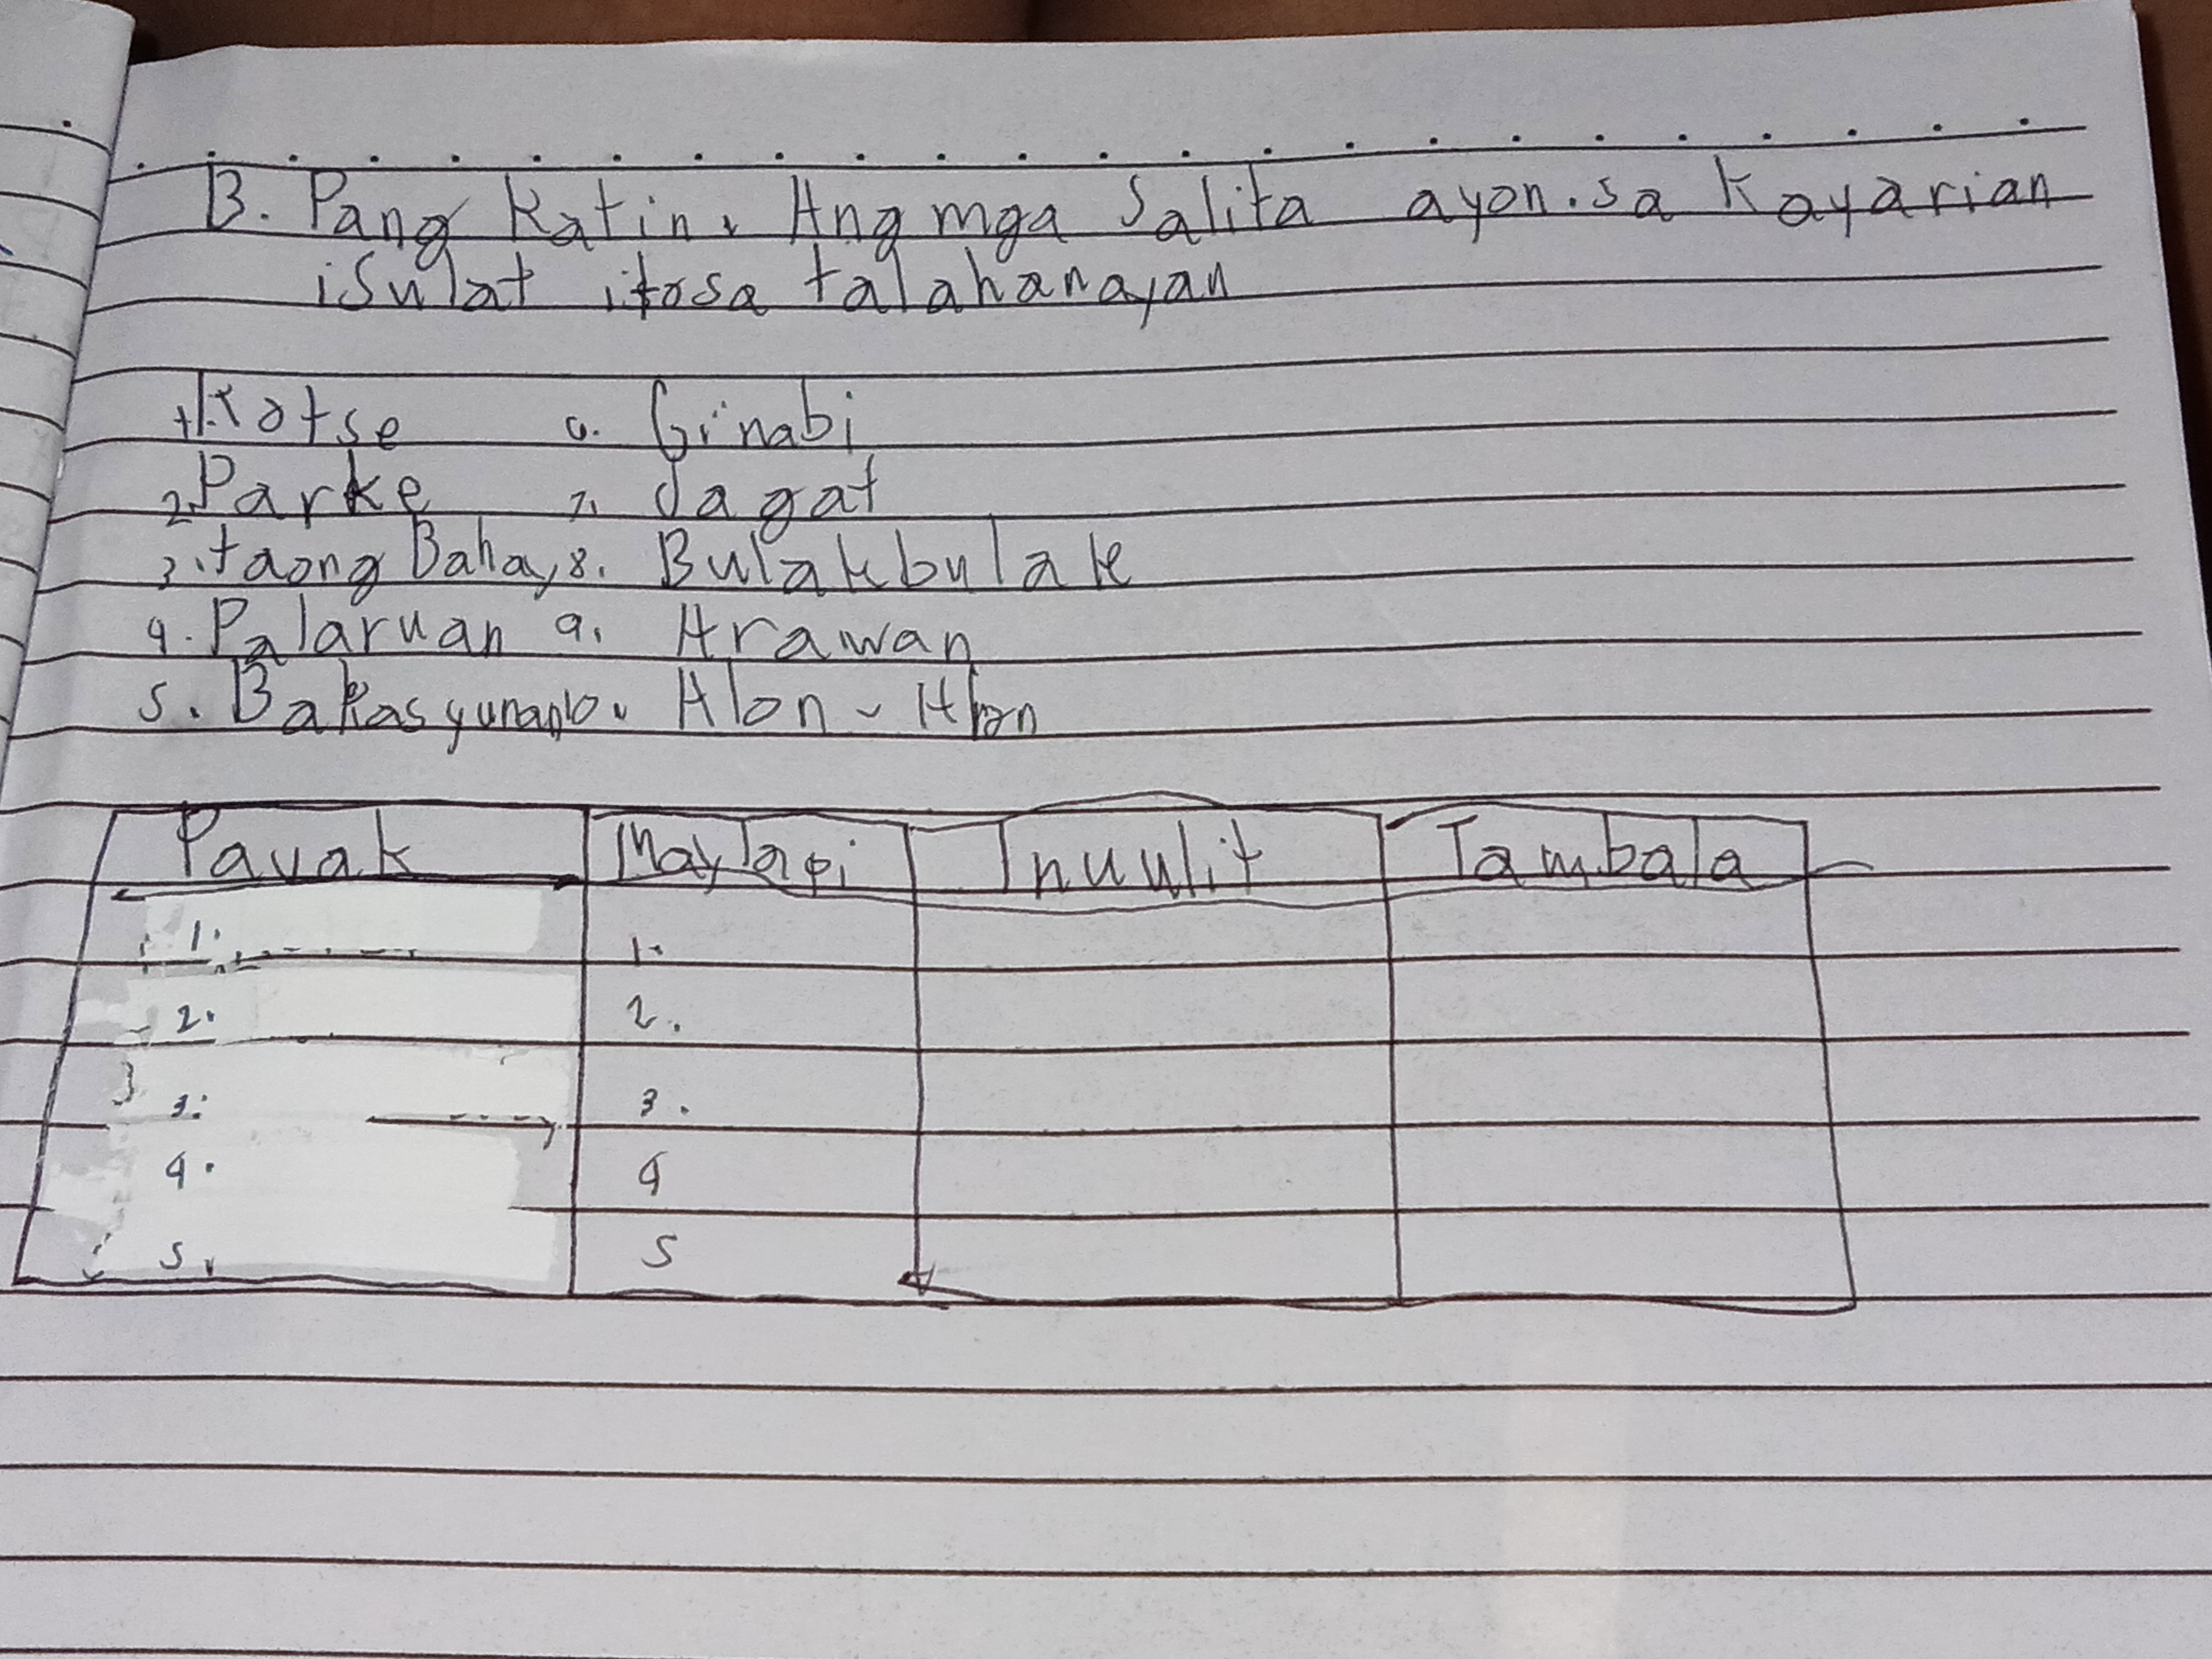 B. Pang Katin. Ang mga Salita ayon.sa Kayarian
isulat itosa talahanayan
1. Kotse 6. Ginabi
2. Parke 7. dagat
3. taong Bahay 8. Bulakbulak
4. Palaruan 9. Arawan
5. Bakasyunan 10. Alon - Alon
Payak Maylapi Inuulit Tambala
1. 1.
2. 2.
3. 3.
4. 4
5. 5